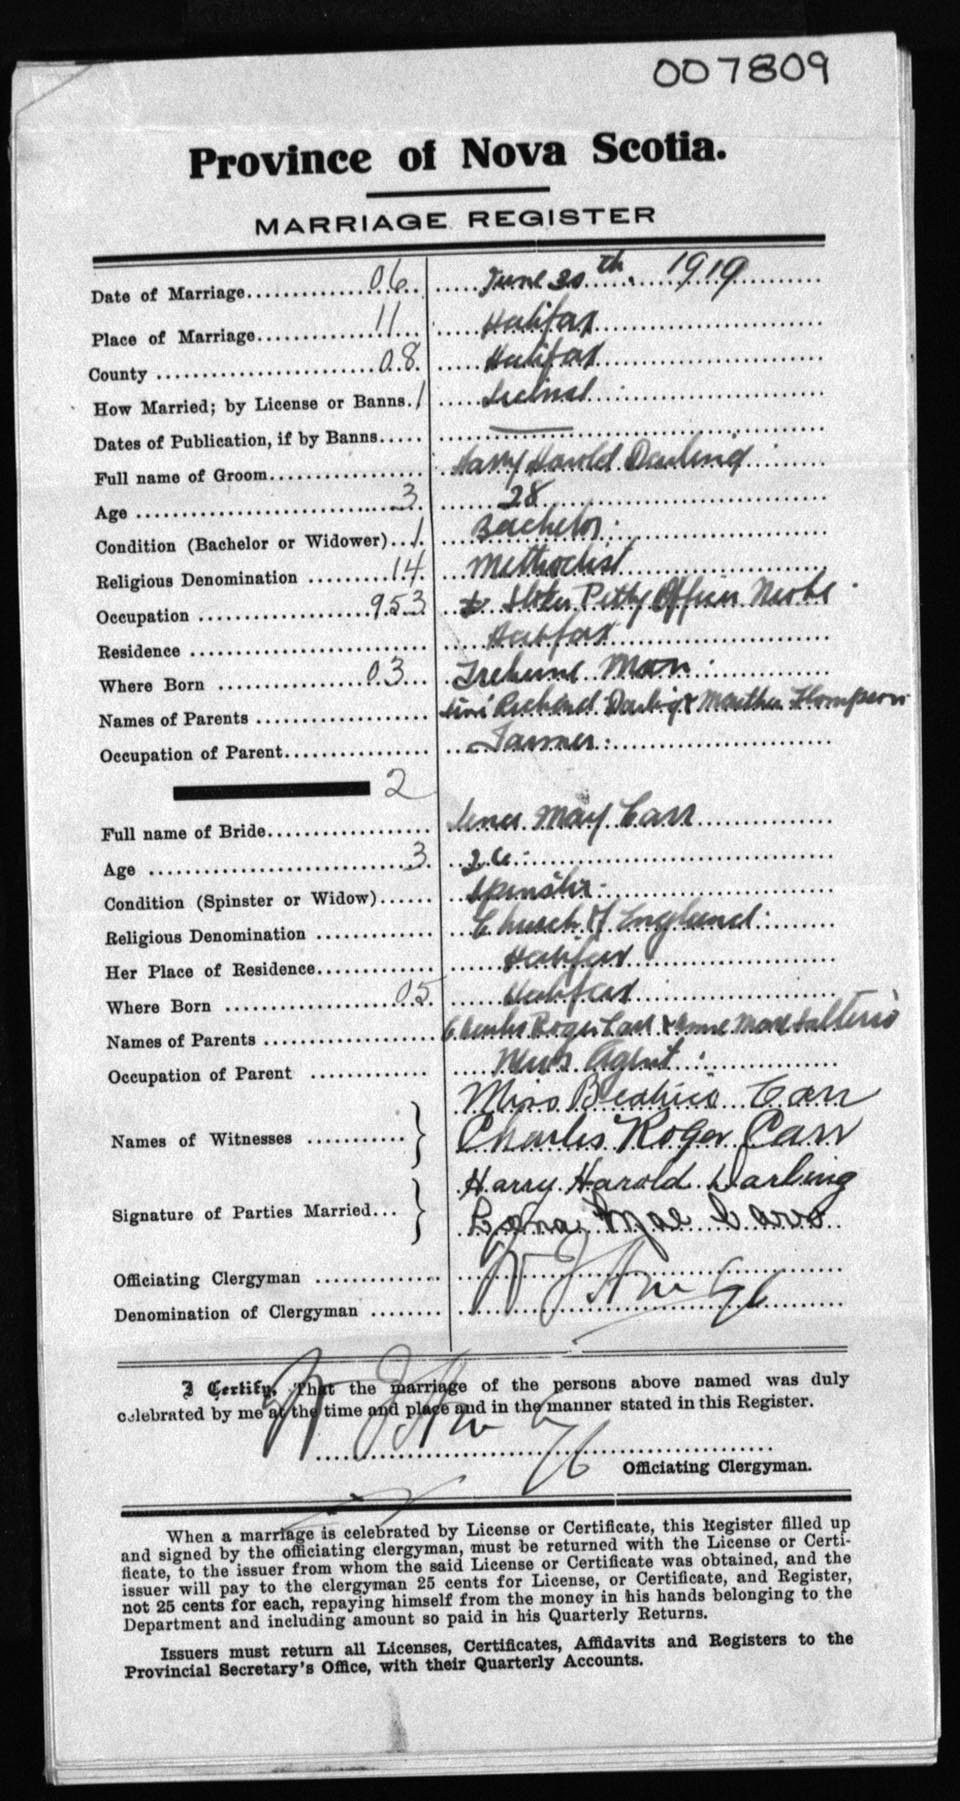 007809
Province of Nova Scotia.
MARRIAGE REGISTER
Date of Marriage 06 June 30th 1919
Place of Marriage 11 Halifax
County 08 Halifax
How Married; by License or Banns 1 License
Dates of Publication, if by Banns
Full name of Groom Harry Harold Darling
Age 3 28
Condition (Bachelor or Widower) 1 Bachelor
Religious Denomination 14 Methodist
Occupation 953 Stoker Petty Officer Niobe
Residence Halifax
Where Born 03 Treherne Man
Names of Parents Richard Darling & Martha Thompson
Occupation of Parent Farmer
2
Full name of Bride May Carr
Age 3 26
Condition (Spinster or Widow) Spinster
Religious Denomination Church of England
Her Place of Residence Halifax
Where Born 05 Halifax
Names of Parents Charles Roger Carr &
Occupation of Parent News Agent
Miss Beatrice Carr
Names of Witnesses } Charles Roger Carr
Harry Harold Darling
Signature of Parties Married } Mae Carr
Officiating Clergyman
Denomination of Clergyman
I Certify, That the marriage of the persons above named was duly
celebrated by me at the time and place and in the manner stated in this Register.
Officiating Clergyman.
When a marriage is celebrated by License or Certificate, this Register filled up
and signed by the officiating clergyman, must be returned with the License or Certi-
ficate, to the issuer from whom the said License or Certificate was obtained, and the
issuer will pay to the clergyman 25 cents for License, or Certificate, and Register,
not 25 cents for each, repaying himself from the money in his hands belonging to the
Department and including amount so paid in his Quarterly Returns.
Issuers must return all Licenses, Certificates, Affidavits and Registers to the
Provincial Secretary's Office, with their Quarterly Accounts.